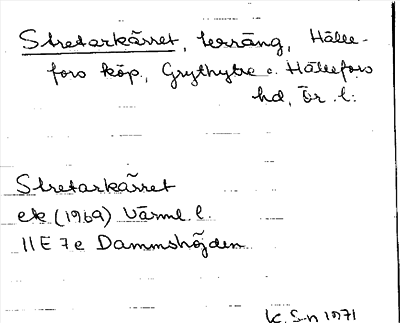 Stretarkärret, terräng, Hälle-
fors köp., Grythytte o. Hällefors
hd, Ör. l:
Stretarkärret
ek (1969) Värml. l.
11E 7e Dammshöjden
K. S-n 1971